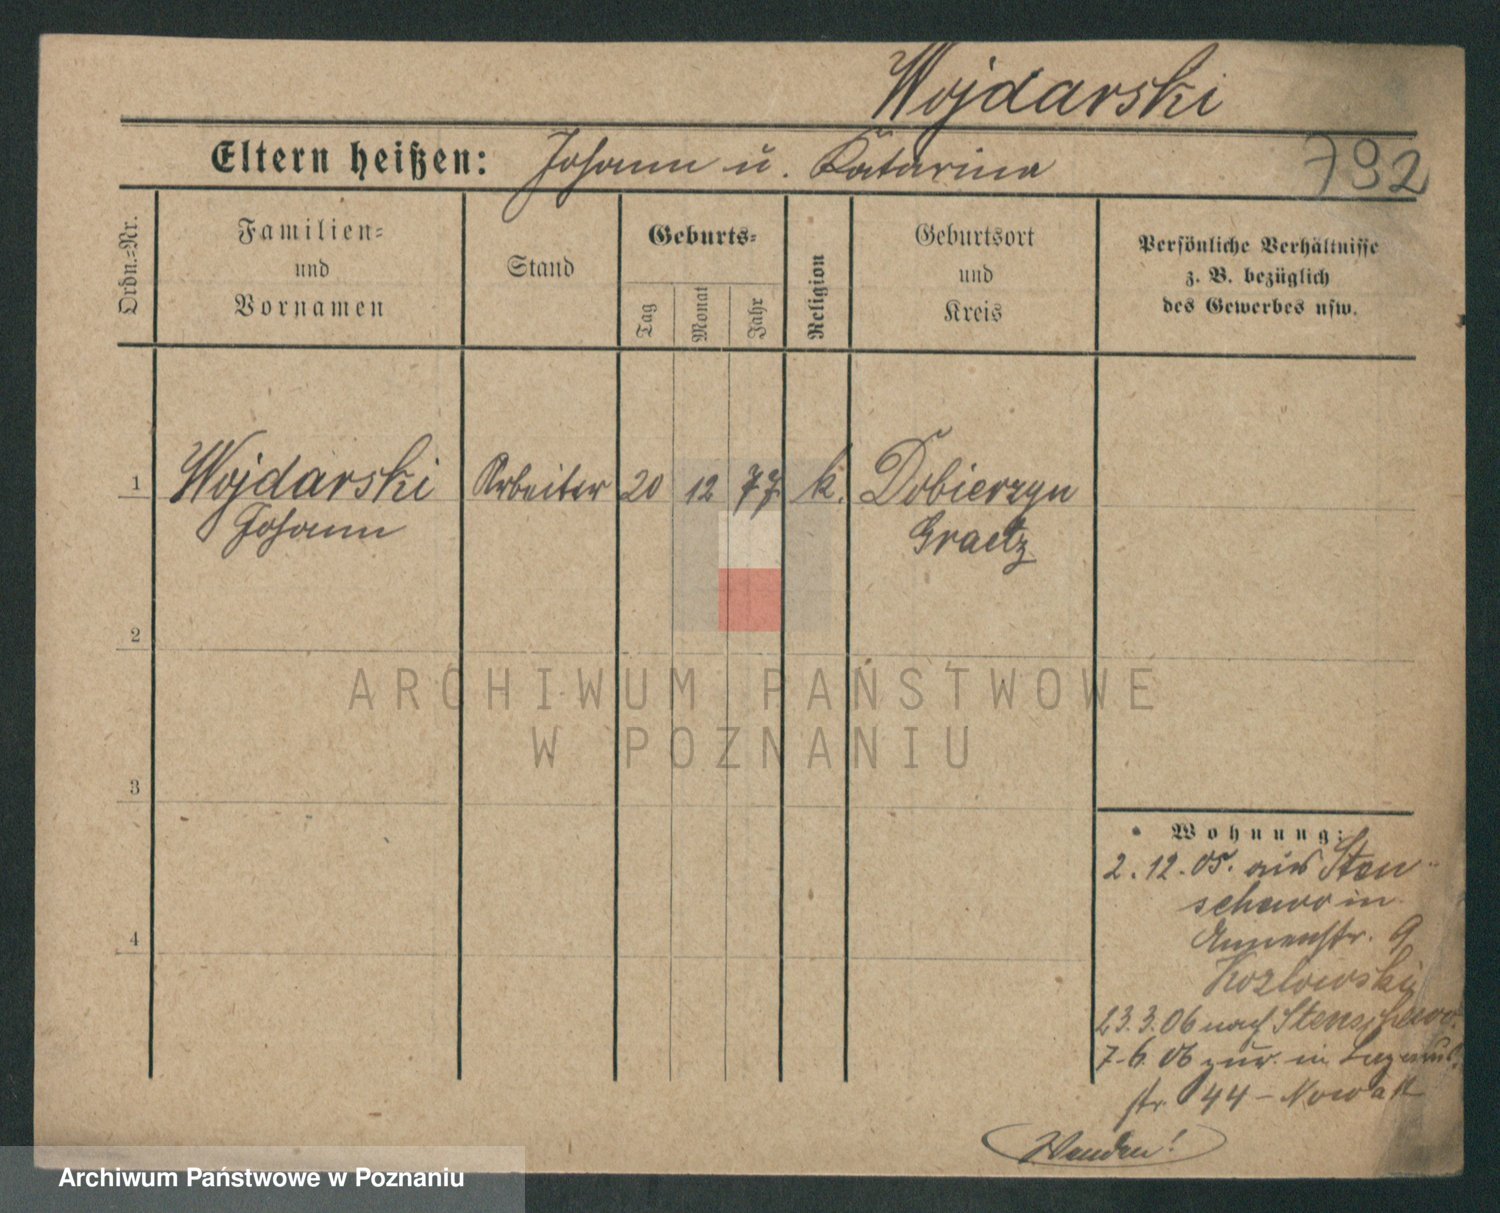 Wojdarski
Eltern heißen: Johann u. Katarina
792
Ordn.=Nr.
Familien=
und
Vornamen
Stand
Geburts=
Tag
Monat
Jahr
Religion
Geburtsort
und
Kreis
Persönliche Verhältnisse
z. B. bezüglich
des Gewerbes usw.
1 Wojdarski Arbeiter 20 12 77 k. Dobierzyn
Johann Graetz
2
3
4
ARCHIWUM PAŃSTWOWE
W POZNANIU
Wohnung:
2.12.05. aus Sten-
schewo in
Annenstr. 9
Kozlowski
23.3.06 nach Stenschewo.
7.6.06 zur. in Lazarus-
str 44 - Nowak
Wenden!
Archiwum Państwowe w Poznaniu